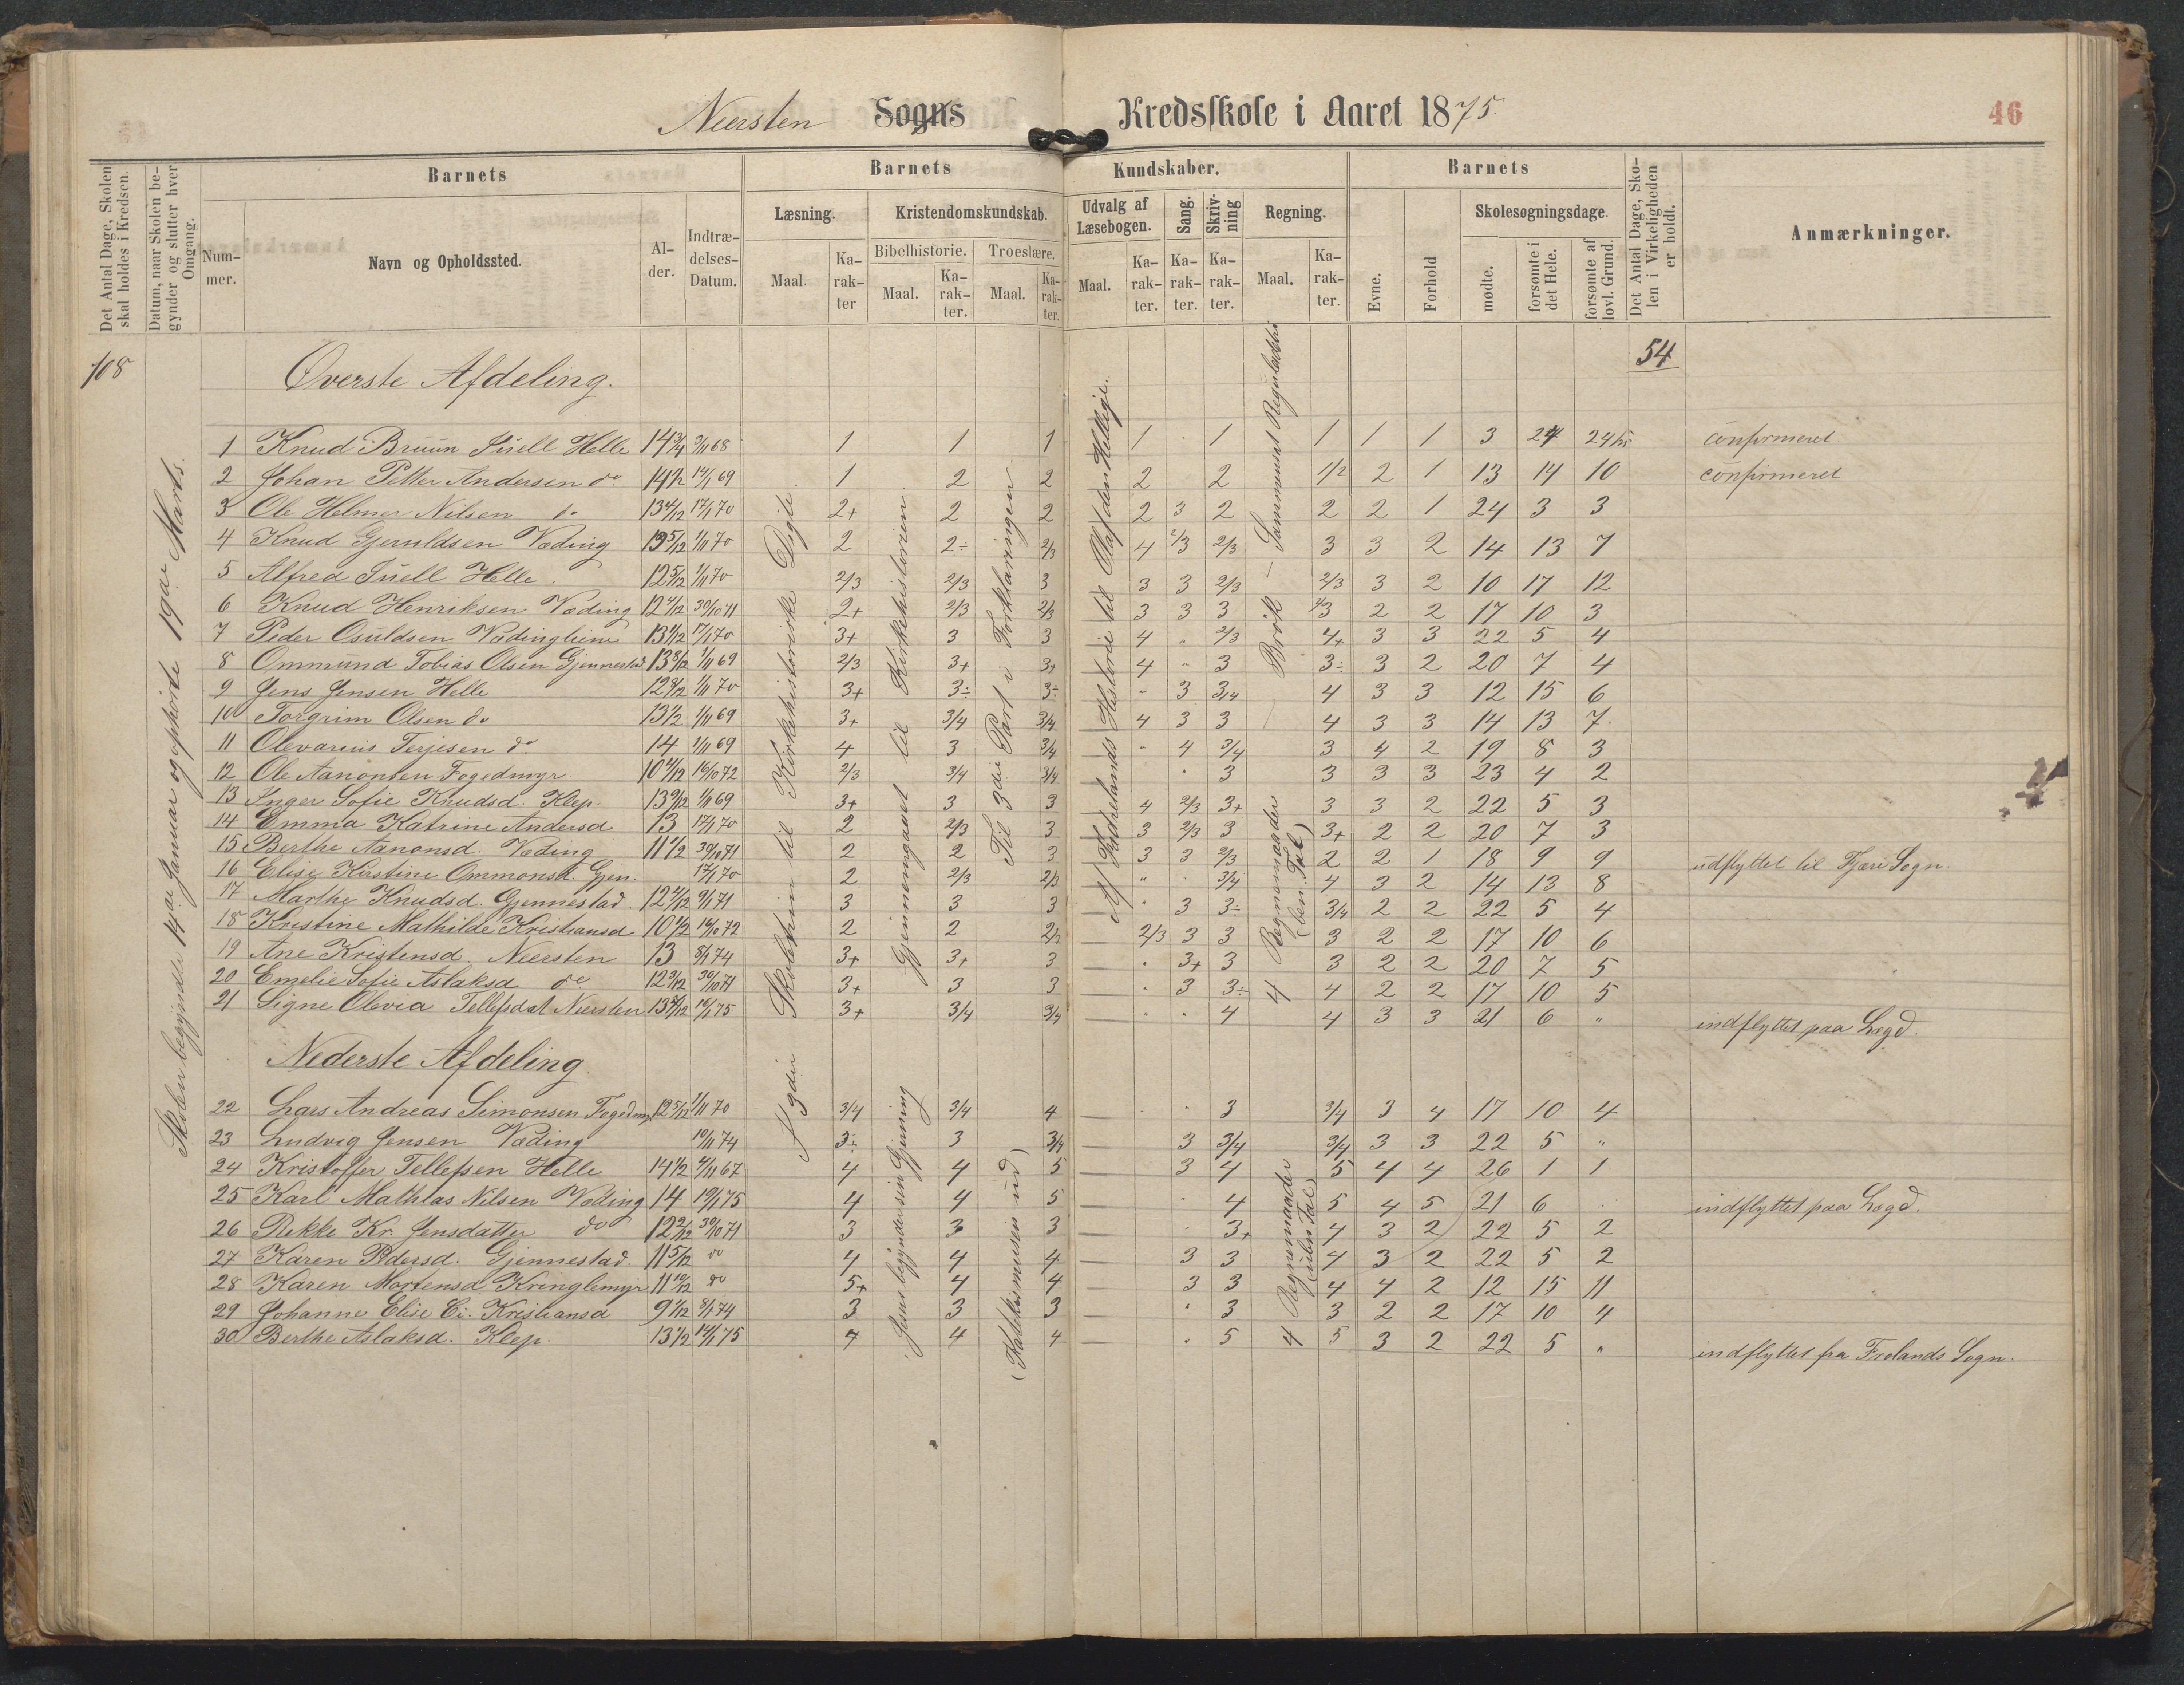 Neersten Sogns Kredsskole i Aaret 1875.
46
Det Antal Dage, Skolen skal holdes i Kredsen.
Datum, naar Skolen begynder og slutter hver Omgang.
Barnets
Nummer.
Navn og Opholdssted.
Alder.
Indtrædelses-Datum.
Barnets Kundskaber.
Læsning.
Maal.
Karakter
Kristendomskundskab.
Bibelhistorie.
Maal.
Karakter.
Troeslære.
Maal.
Karakter.
Udvalg af Læsebogen.
Maal.
Karakter.
Sang.
Karakter.
Skrivning
Karakter.
Regning.
Maal.
Karakter.
Barnets
Evne.
Forhold
Skolesøgningsdage.
mødte.
forsømte i det Hele.
forsømte af lovl. Grund.
Det Antal Dage, Skolen i Virkeligheden er holdt.
Anmærkninger.
108
54
Skolen begynder 14de Januar og ophørte 19de Marts.
Øverste Afdeling.
1 Knud Bruun Juell Helle 14 3/4 68 1 1 1 1 1 1 1 1 3 24 24 confirmeret
2 Johan Petter Andersen do 14 1/2 14/1 69 1 2 2 2 2 1/2 2 1 13 14 10 confirmeret
3 Ole Helmer Nilsen do 13 4/12 17/1 70 2+ 2 2 2 3 2 2 2 1 24 3 3
4 Knud Gjeruldsen Væding 13 5/12 1/11 70 2 2÷ 2/3 4 2/3 2/3 3 3 2 14 13 7
5 Alfred Juell Helle 12 5/12 1/11 70 2/3 2/3 3 3 3 2/3 2/3 3 2 10 17 12
6 Knud Henriksen Væding 12 30/10 71 2+ 2/3 2/3 3 3 3 2 2 17 10 3
7 Peder Osuldsen 13 17/1 70 3+ 3 3 4 " 2/3 4+ 3 3 22 5 4
8 Ommund Tobias Olsen Gjennestad 13 8/12 1/11 69 2/3 3+ 3+ 4 " 3 3÷ 3 2 20 7 4
9 Jens Jensen Helle 12 8/12 1/11 70 3+ 3÷ 3÷ " 3 3/4 4 3 3 12 15 6
10 Torgrim Olsen do 13 1/2 1/11 69 3+ 3/4 3/4 4 3 3 4 3 3 14 13 7
11 Olevarius Terjesen do 14 1/11 69 4 3 3/4 " 4 3/4 3 4 2 19 8 3
12 Ole Aanonsen Fogedmyr 10 16/10 72 2/3 3/4 3/4 3 3 3 3 23 4 2
13 Inger Sofie Knudsd. Klep. 13 9/12 1/11 69 3+ 3 3 4 2/3 3+ 3 3 2 22 5 3
14 Emma Katrine Andersd 13 17/1 70 2 2/3 3 3 2/3 3 3+ 2 2 20 7 3
15 Berthe Aanonsd. Væding 11 1/2 30/10 71 2 2 3 3 3 2/3 2 2 1 18 9 9 udflyttet til Fjære Sogn.
16 Elise Kirstine Ommonsd. Gjen. 17/1 70 2 2/3 2/3 " 3/4 4 3 2 14 13 8
17 Marthe Knudsd. Gjennestad 12 9/1 71 3 3 3 " 3 3÷ 3/4 2 2 22 5 4
18 Kristine Mathilde Kristiansd 10 1/2 16/10 72 2 2 2/3 2/3 3 3 3 2 2 17 10 6
19 Ane Kristensd. Neersten 13 8/1 74 3+ 3+ 3 " 3+ 3 3 2 2 20 7 5
20 Emelie Sofie Aslaksd do 12 3/12 30/10 71 3+ 3 3 " 3 3÷ 4 2 2 17 10 5
21 Signe Olevia Tellefsdat Neersten 13 16/1 75 3+ 3/4 3/4 " " 4 4 3 3 21 6 " indflyttet paa Lægd.
Nederste Afdeling
22 Lars Andreas Simonsen Fogedmyr 12 5/12 1/11 70 3/4 3/4 4 " 3 3/4 3 4 17 10 4
23 Ludvig Jensen Væding 10/11 74 3÷ 3 3/4 3 3/4 3/4 3 3 22 5 "
24 Kristoffer Tellefsen Helle 14 1/2 4/11 67 4 4 5 3 4 5 4 4 26 1 1
25 Karl Mathias Nilsen Væding 14 19/1 75 4 4 5 4 5 4 5 21 6 indflyttet paa Lægd.
26 Rikke Kr. Jensdatter do 12 2/12 30/10 71 3 3 3 3+ 4 3 2 22 5 2
27 Karen Pedersd. Gjennestad. 11 5/12 do 4 4 4 3 3 4 3 2 22 5 2
28 Karen Mortensd. Kringlemyr 11 10/12 do 5+ 4 4 3 3 4 4 2 12 15 11
29 Johanne Elise Kristiansd 9 8/1 74 3 3 3 " 3 3 2 2 17 10 4
30 Berthe Aslaksd. Klep. 13 1/2 14/1 75 4 4 4 " 5 5 3 2 22 5 " indflyttet fra Frolands Sogn.
Af 3die Skoletrin til Kirkehistoriske Digte
Gjennemgaaet til Kirkehistorien
Jesus begynder sin Gjerning
Til 3die Part i Forklaringen
(Katekismusen ud)
Af Fædrelands Historie til Olaf den Hellige.
4 Regnemaader (ben. Tal) — Brøk — Sammensat Reguladetri
4 Regnemaader (uben Tal)